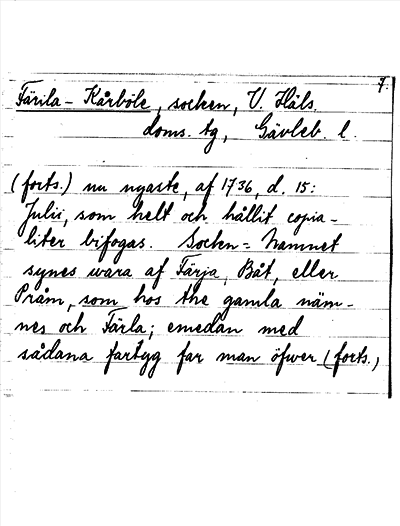 7.
Färila - Kårböle, socken, V. Häls.
doms. tg, Gävleb. l.
(forts.) nu nyaste, af 1736, d. 15:
Julii, som helt och hållit copia-
liter bifogas. Socken = Namnet
synes wara af Färja, Båt, eller
Pråm, som hos the gamla näm-
nes och Färla; emedan med
sådana fartyg far man öfwer (forts.)